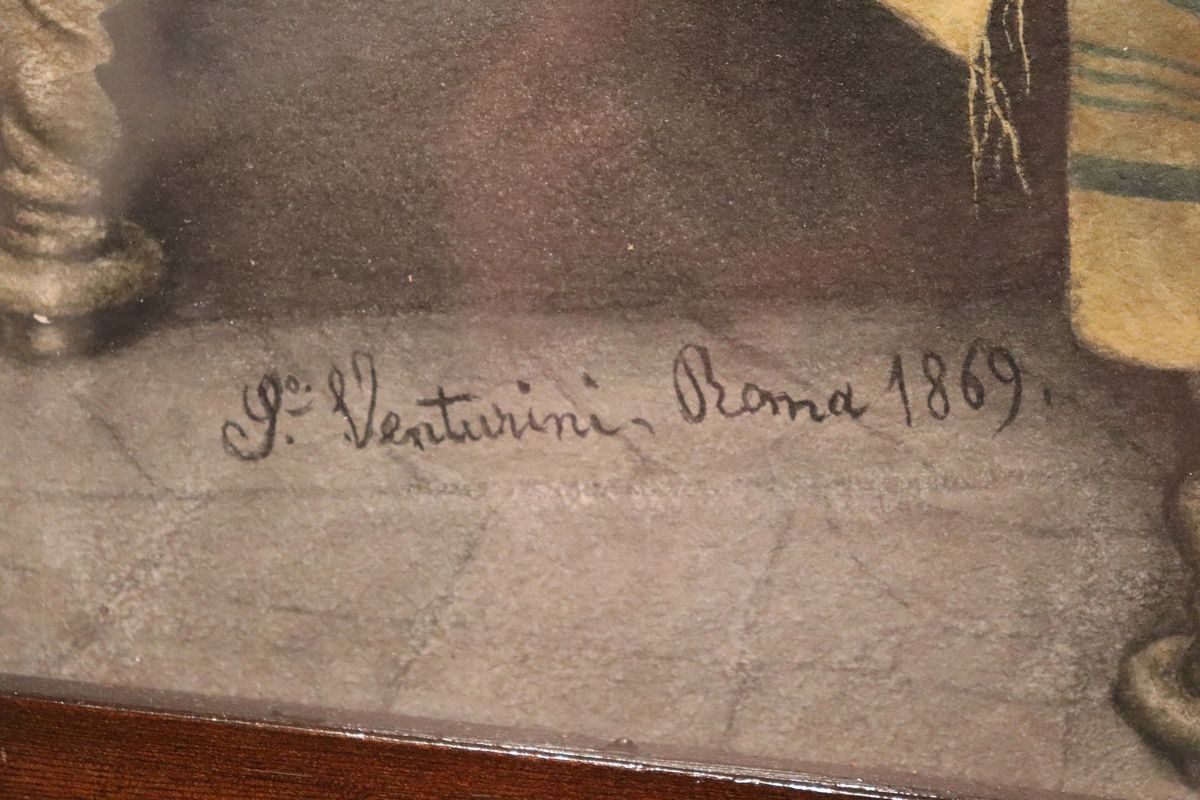 S.º Venturini. Roma 1869.